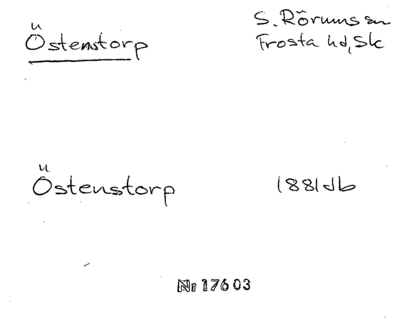 Östenstorp
S. Rörums sn
Frosta hd, Sk
Östenstorp
1881 db
Nr 17603